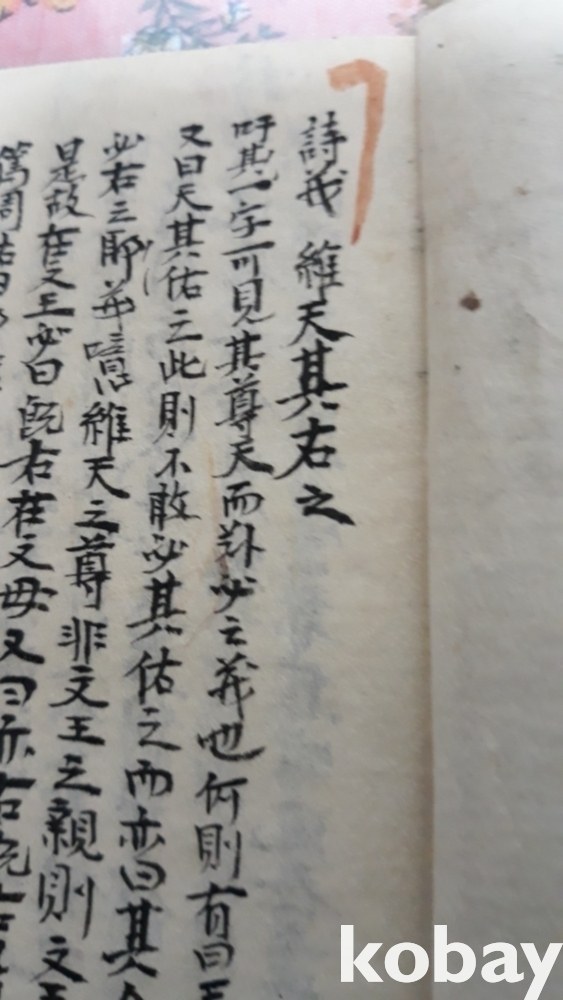 詩義 維天其右之
吁其一字可見其尊天而非必之義也何則有曰
又曰天其佑之此則不敢必其佑之而亦曰其
必右之耶 噫維天之尊非文王之親則文
是故在文王必曰旣右在文母又曰亦右
篤周祜
kobay